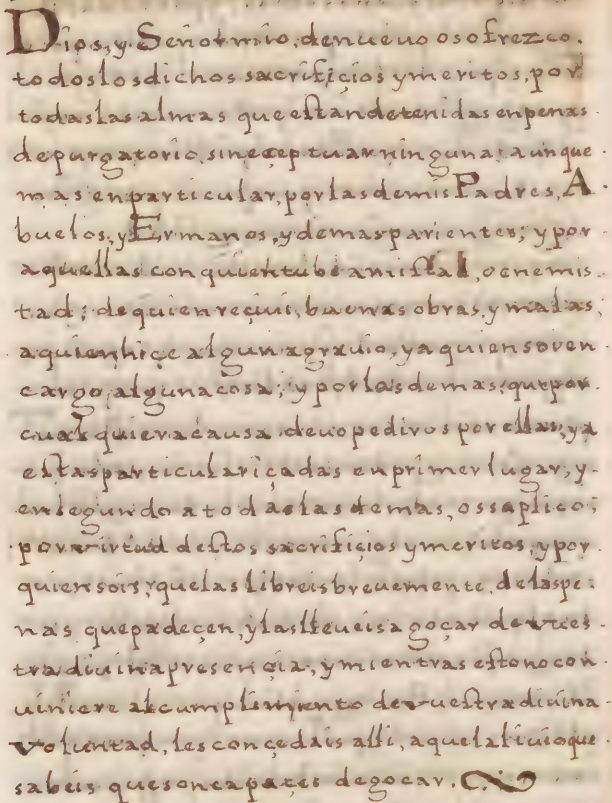 Dios, y Señor mio, de nueuo os ofrezco,
todos los dichos sacrificios y meritos, por
todas las almas que estan detenidas en penas
de purgatorio, sin eceptuar ninguna; aunque
mas en particular, por las de mis Padres, A-
buelos, y Ermanos, y demas parientes; y por
aquellas con quien tube amistad, o enemis-
tad; de quien reçiui, buenas obras, y malas,
a quien hiçe algun agrauio, y a quien soy en
cargo, alguna cosa; y por las demas, que por
cualquiera causa deuo pediros por ellas, y a
estas particulariçadas en primer lugar, y-
en segundo a todas las demas, os suplico;
por virtud destos sacrifiçios y meritos, y por
quien sois; que las libreis breuemente, de las pe-
nas que padeçen, y las lleueis a goçar de vues-
tra diuina presençia, y mientras esto no con-
uiniere al cumplimiento de vuestra diuina-
voluntad, les conçedais alli, aquel aliuio que
sabeis que son capaçes de goçar.